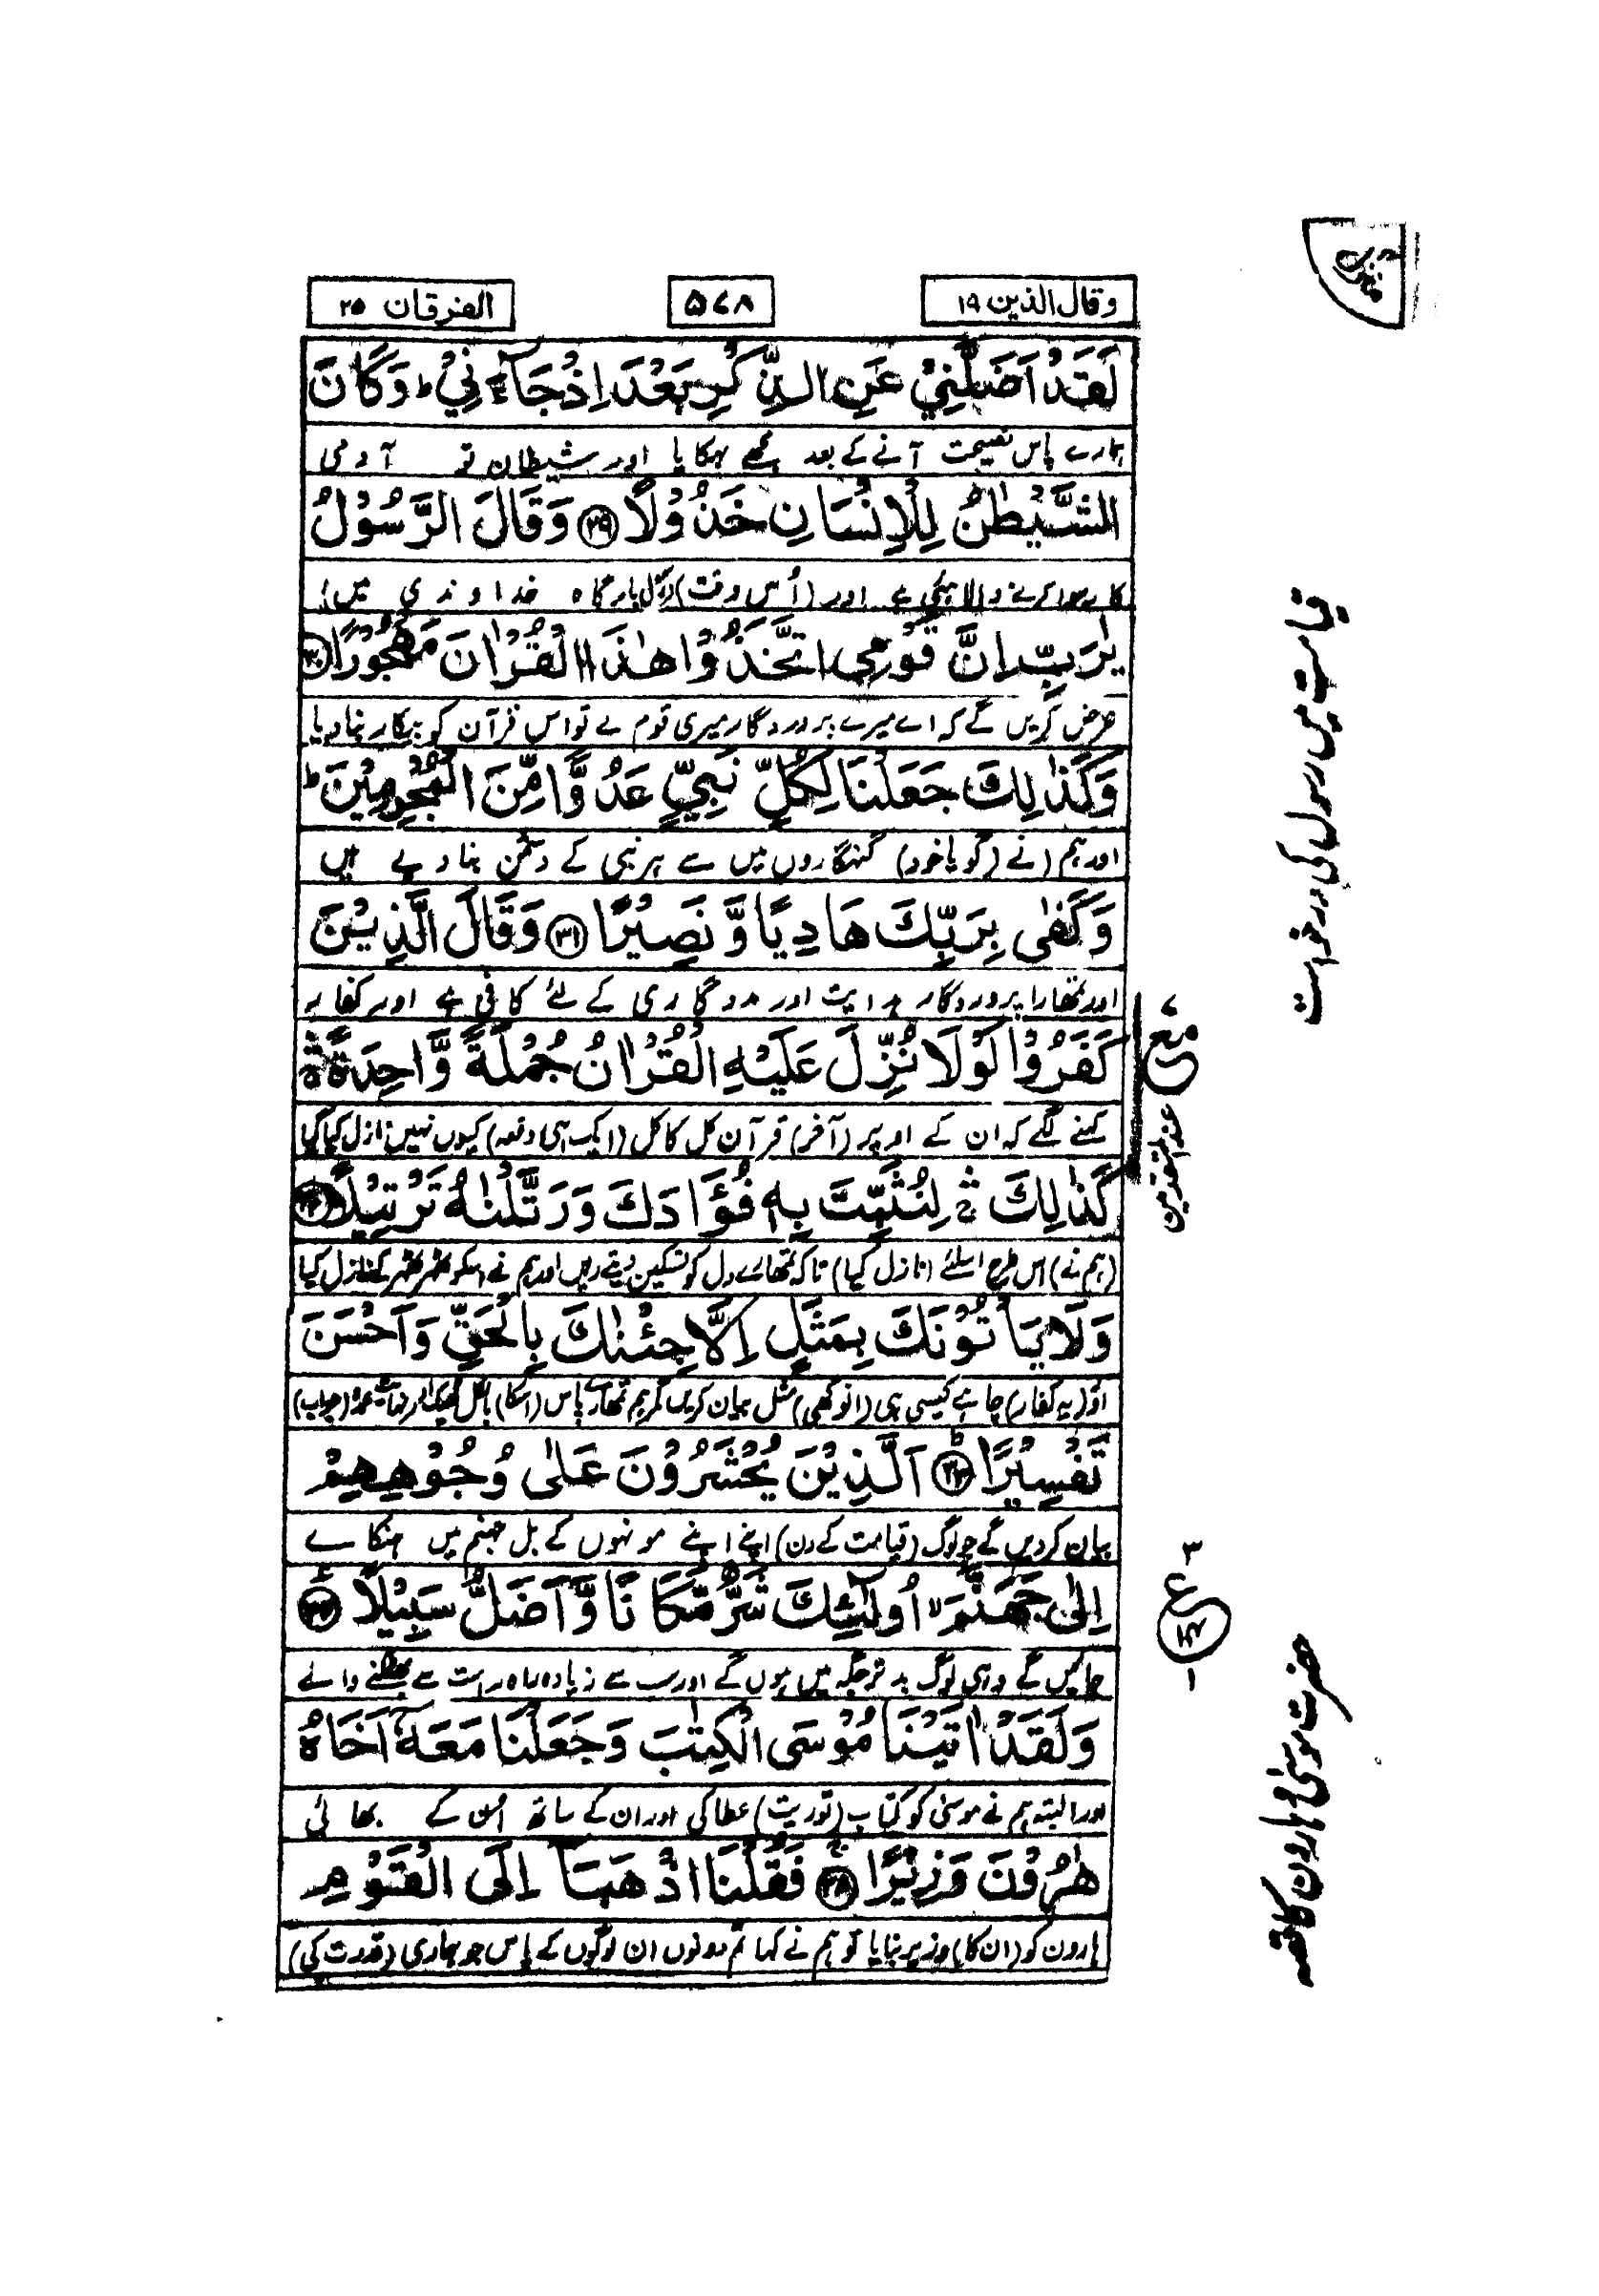 وقال الذين ۱۹
۵۷۸
الفرقان ۲۵
لَقَدْ اَضَلَّنِيْ عَنِ الذِّكْرِ بَعْدَ اِذْ جَآءَنِيْ ؕ وَ كَانَ
ہمارے پاس نصیحت آنے کے بعد مجھے بہکایا اور شیطان تو آدمی
الشَّيْطٰنُ لِلْاِنْسَانِ خَذُوْلًا ﴿۲۹﴾ وَ قَالَ الرَّسُوْلُ
کا رسوا کرنے والا ہی ہے اور (اُس وقت) رسول بارگاہ خداوندی میں
يٰرَبِّ اِنَّ قَوْمِي اتَّخَذُوْا هٰذَا الْقُرْاٰنَ مَهْجُوْرًا ﴿۳۰﴾
عرض کریں گے کہ اے میرے پروردگار میری قوم نے تو اس قرآن کو بیکار بنا دیا
وَ كَذٰلِكَ جَعَلْنَا لِكُلِّ نَبِيٍّ عَدُوًّا مِّنَ الْمُجْرِمِيْنَ ؕ
اور ہم (نے (گویا خود) گنہگاروں میں سے ہر نبی کے دشمن بنا دیے ہیں
وَ كَفٰى بِرَبِّكَ هَادِيًا وَّ نَصِيْرًا ﴿۳۱﴾ وَ قَالَ الَّذِيْنَ
اور تمھارا پروردگار ہدایت اور مددگاری کے لئے کافی ہے اور کفار یہ
كَفَرُوْا لَوْلَا نُزِّلَ عَلَيْهِ الْقُرْاٰنُ جُمْلَةً وَّاحِدَةً ۛ
کہنے لگے کہ ان کے اوپر (آخر) قرآن کل کا کل (ایک ہی دفعہ) کیوں نہیں نازل کیا گیا
كَذٰلِكَ ۛ لِنُثَبِّتَ بِهٖ فُؤَادَكَ وَ رَتَّلْنٰهُ تَرْتِيْلًا ﴿۳۲﴾
(ہم نے) اس طرح اسلئے (نازل کیا) تاکہ تمھارے دل کو تسکین دیتے رہیں اور ہم نے اسکو ٹھہر ٹھہر کے نازل کیا
وَ لَا يَاْتُوْنَكَ بِمَثَلٍ اِلَّا جِئْنٰكَ بِالْحَقِّ وَ اَحْسَنَ
اور (یہ کفار) چاہے کیسی ہی (انوکھی) مثل بیان کریں مگر ہم تمھارے پاس (اسکا) بالکل ٹھیک اور نہایت عمدہ (جواب)
تَفْسِيْرًا ؕ ﴿۳۳﴾ اَلَّذِيْنَ يُحْشَرُوْنَ عَلٰى وُجُوْهِهِمْ
بیان کردیں گے جو لوگ (قیامت کے دن) اپنے اپنے مونہوں کے بل جہنم میں ہنکائے
اِلٰى جَهَنَّمَ ۙ اُولٰٓئِكَ شَرٌّ مَّكَانًا وَّ اَضَلُّ سَبِيْلًا ﴿۳۴﴾
جائیں گے وہی لوگ بد تر جگہ میں ہوں گے اور سب سے زیادہ راہ راست سے بھٹکنے والے
وَ لَقَدْ اٰتَيْنَا مُوْسَى الْكِتٰبَ وَ جَعَلْنَا مَعَهٗۤ اَخَاهُ
اور البتہ ہم نے موسیٰ کو کتاب (توریت) عطا کی اور ان کے ساتھ اُن کے بھائی
هٰرُوْنَ وَزِيْرًا ۚ ﴿۳۵﴾ فَقُلْنَا اذْهَبَاۤ اِلَى الْقَوْمِ
ہارون کو (ان کا) وزیر بنایا تو ہم نے کہا تم دونوں ان لوگوں کے پاس جو ہماری (قدرت کی)
قیامت میں رسول کی درخواست
مع
عند المتقدمین
۳
ع
۱
حضرت موسیٰ و ہارون کا قصہ